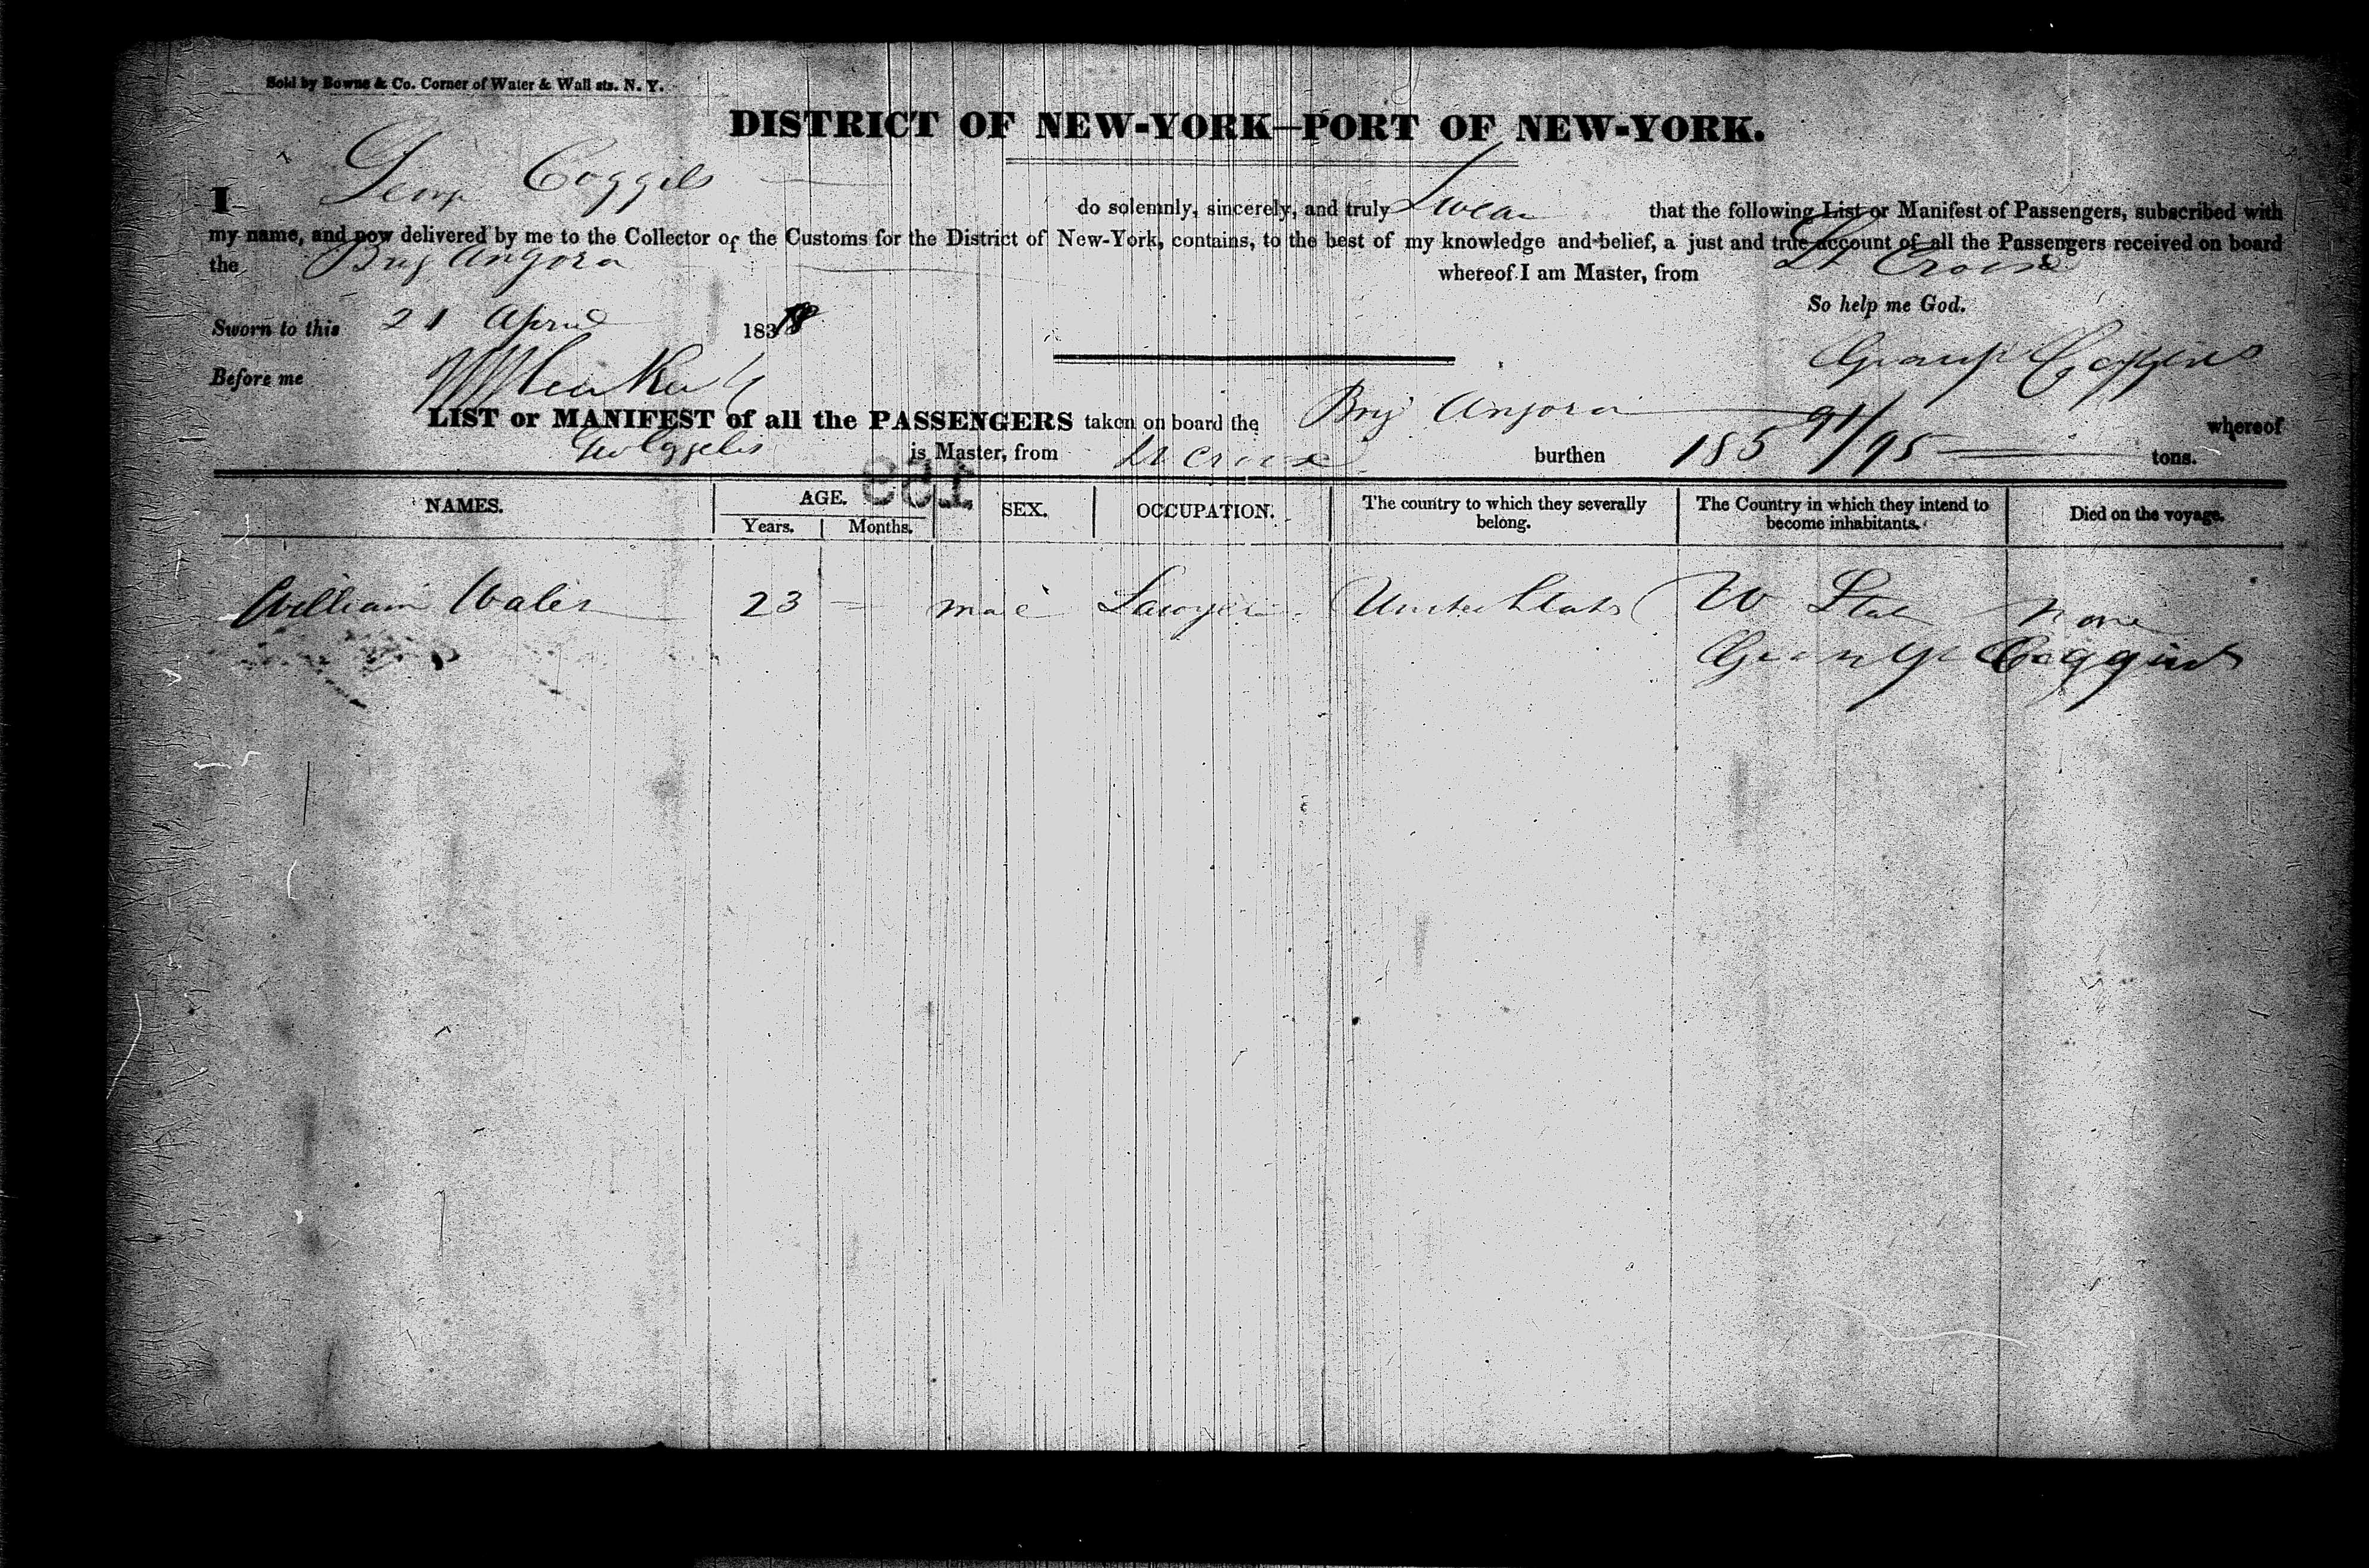 Sold by Bowne & Co. Corner of Water & Wall sts. N. Y.
DISTRICT OF NEW-YORK—PORT OF NEW-YORK.
I Coggels do solemnly, sincerely, and truly Swear that the following List or Manifest of Passengers, subscribed with
my name, and now delivered by me to the Collector of the Customs for the District of New-York, contains, to the best of my knowledge and belief, a just and true account of all the Passengers received on board
the Brig Angora whereof I am Master, from St Croix
So help me God.
Sworn to this 21 April 1838
Before me
LIST or MANIFEST of all the PASSENGERS taken on board the Brig Angora whereof
is Master, from St Croix burthen 185 91/95 tons.
199
NAMES. AGE. SEX. OCCUPATION. The country to which they severally belong. The Country in which they intend to become inhabitants. Died on the voyage.
Years. Months.
William Wales 23 — male Lawyer United States U State none
Coggins